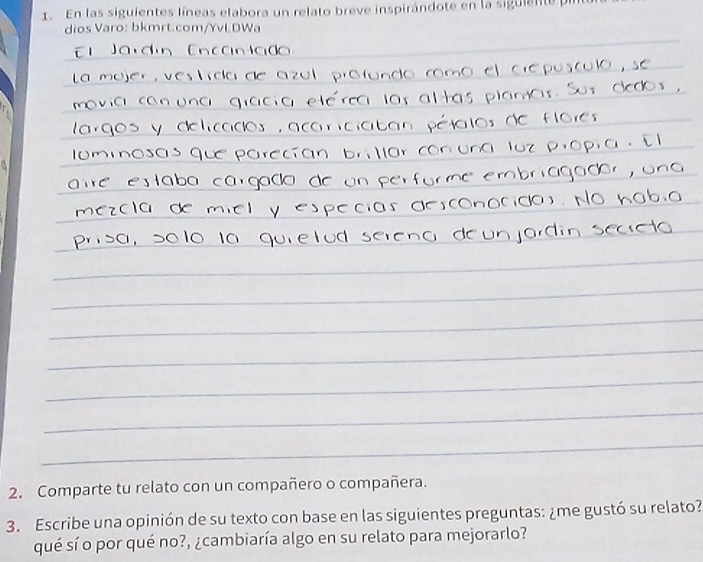 1. En las siguientes líneas elabora un relato breve inspirándote en la siguiente
dios Varo: bkmrt.com/YvLDWa
El Jardin Encantado
La mujer, vestida de azul profundo como el crepusculo, se
movia con una gracia etérea las altas plantas. Sus dedos,
largos y delicados, acariciaban pétalos de flores
luminosas que parecían brillar con una luz propia. El
aire estaba cargado de un perfurme embriagador, una
mezcla de miel y especias desconocidas. No habia
prisa, solo la quietud serena de un jardin secreto
2. Comparte tu relato con un compañero o compañera.
3. Escribe una opinión de su texto con base en las siguientes preguntas: ¿me gustó su relato?
qué sí o por qué no?, ¿cambiaría algo en su relato para mejorarlo?